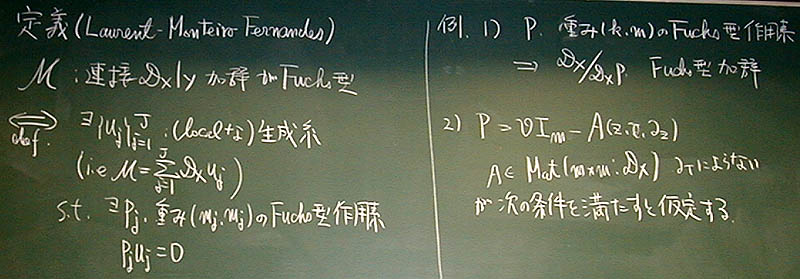 定義 (Laurent-Monteiro Fernandes)
M : 連接 D_X|_Y 加群が Fuchs 型
⇔ def. ∃{u_j}_{j=1}^J : (local +) 生成系
(i.e. M = Σ_{j=1}^J D_X u_j)
s.t. ∃P_j : 重み (m_j, m_j) の Fuchs 型作用素
P_j u_j = 0
例. 1) P : 重み (k, m) の Fuchs 型作用素
⇒ D_X/D_X P : Fuchs 型加群
2) P = ϑ I_m − A(z, τ, ∂_z)
A ∈ Mat(m×m : D_X) ∂_τ によらない
が次の条件を満たすと仮定する.